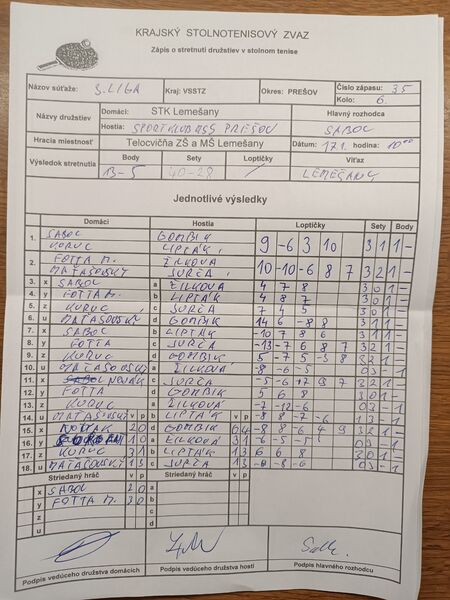 KRAJSKÝ STOLNOTENISOVÝ ZVAZ
Zápis o stretnutí družstiev v stolnom tenise
Názov súťaže: 3. LIGA Kraj: VSSTZ Okres: PREŠOV Číslo zápasu: 35
Kolo: 6.
Názvy družstiev Domáci: STK Lemešany Hlavný rozhodca
Hostia: PREŠOV SABOL
Hracia miestnosť Telocvičňa ZŠ a MŠ Lemešany Dátum: 17.1. hodina: 10 00
Výsledok stretnutia Body Sety Loptičky Víťaz
13-5 40-28 LEMEŠANY
Jednotlivé výsledky
Domáci Hostia Loptičky Sety Body
1. SABOL GOMBIK 9 -6 3 10 3 1 1 -
KORUC LIPTÁK
2. FOTTA M. ŽILKOVÁ 10 -10 -6 8 7 3 2 1 -
MATAŠOVSKÝ JURČA
3. x SABOL a ŽILKOVÁ 4 7 8 3 0 1 -
4. y FOTTA M. b LIPTÁK 4 8 7 3 0 1 -
5. z KORUC c JURČA 7 4 5 3 0 1 -
6. u MATAŠOVSKÝ d GOMBIK 14 6 -8 8 3 1 1 -
7. x SABOL b LIPTÁK -10 7 8 6 3 1 1 -
8. y FOTTA c JURČA -13 -7 6 8 7 3 2 1 -
9. z KORUC d GOMBIK 5 -7 5 -3 8 3 2 1 -
10. u MATAŠOVSKÝ a ŽILKOVÁ -8 -6 -5 0 3 - 1
11. x c JURČA -5 -6 9 7 3 2 1 -
12. y FOTTA d GOMBIK 5 6 8 3 0 1 -
13. z KORUC a ŽILKOVÁ -7 -12 -6 0 3 - 1
14. u MATAŠOVSKÝ v p b LIPTÁK v p -8 8 -7 -6 1 3 - 1
15. x 2 0 d GOMBIK 0 4 -8 8 -6 4 9 3 2 1 -
16. y 1 0 a ŽILKOVÁ 3 1 -6 -5 -5 0 3 - 1
17. z KORUC 3 1 b LIPTÁK 1 3 6 6 8 3 0 1 -
18. u MATAŠOVSKÝ 1 3 c JURČA 1 3 -8 -6 0 3 - 1
Striedaný hráč v p Striedaný hráč v p
x SABOL 2 0 a
y FOTTA M. 3 0 b
z c
u d
Podpis vedúceho družstva domácich Podpis vedúceho družstva hostí Podpis hlavného rozhodcu